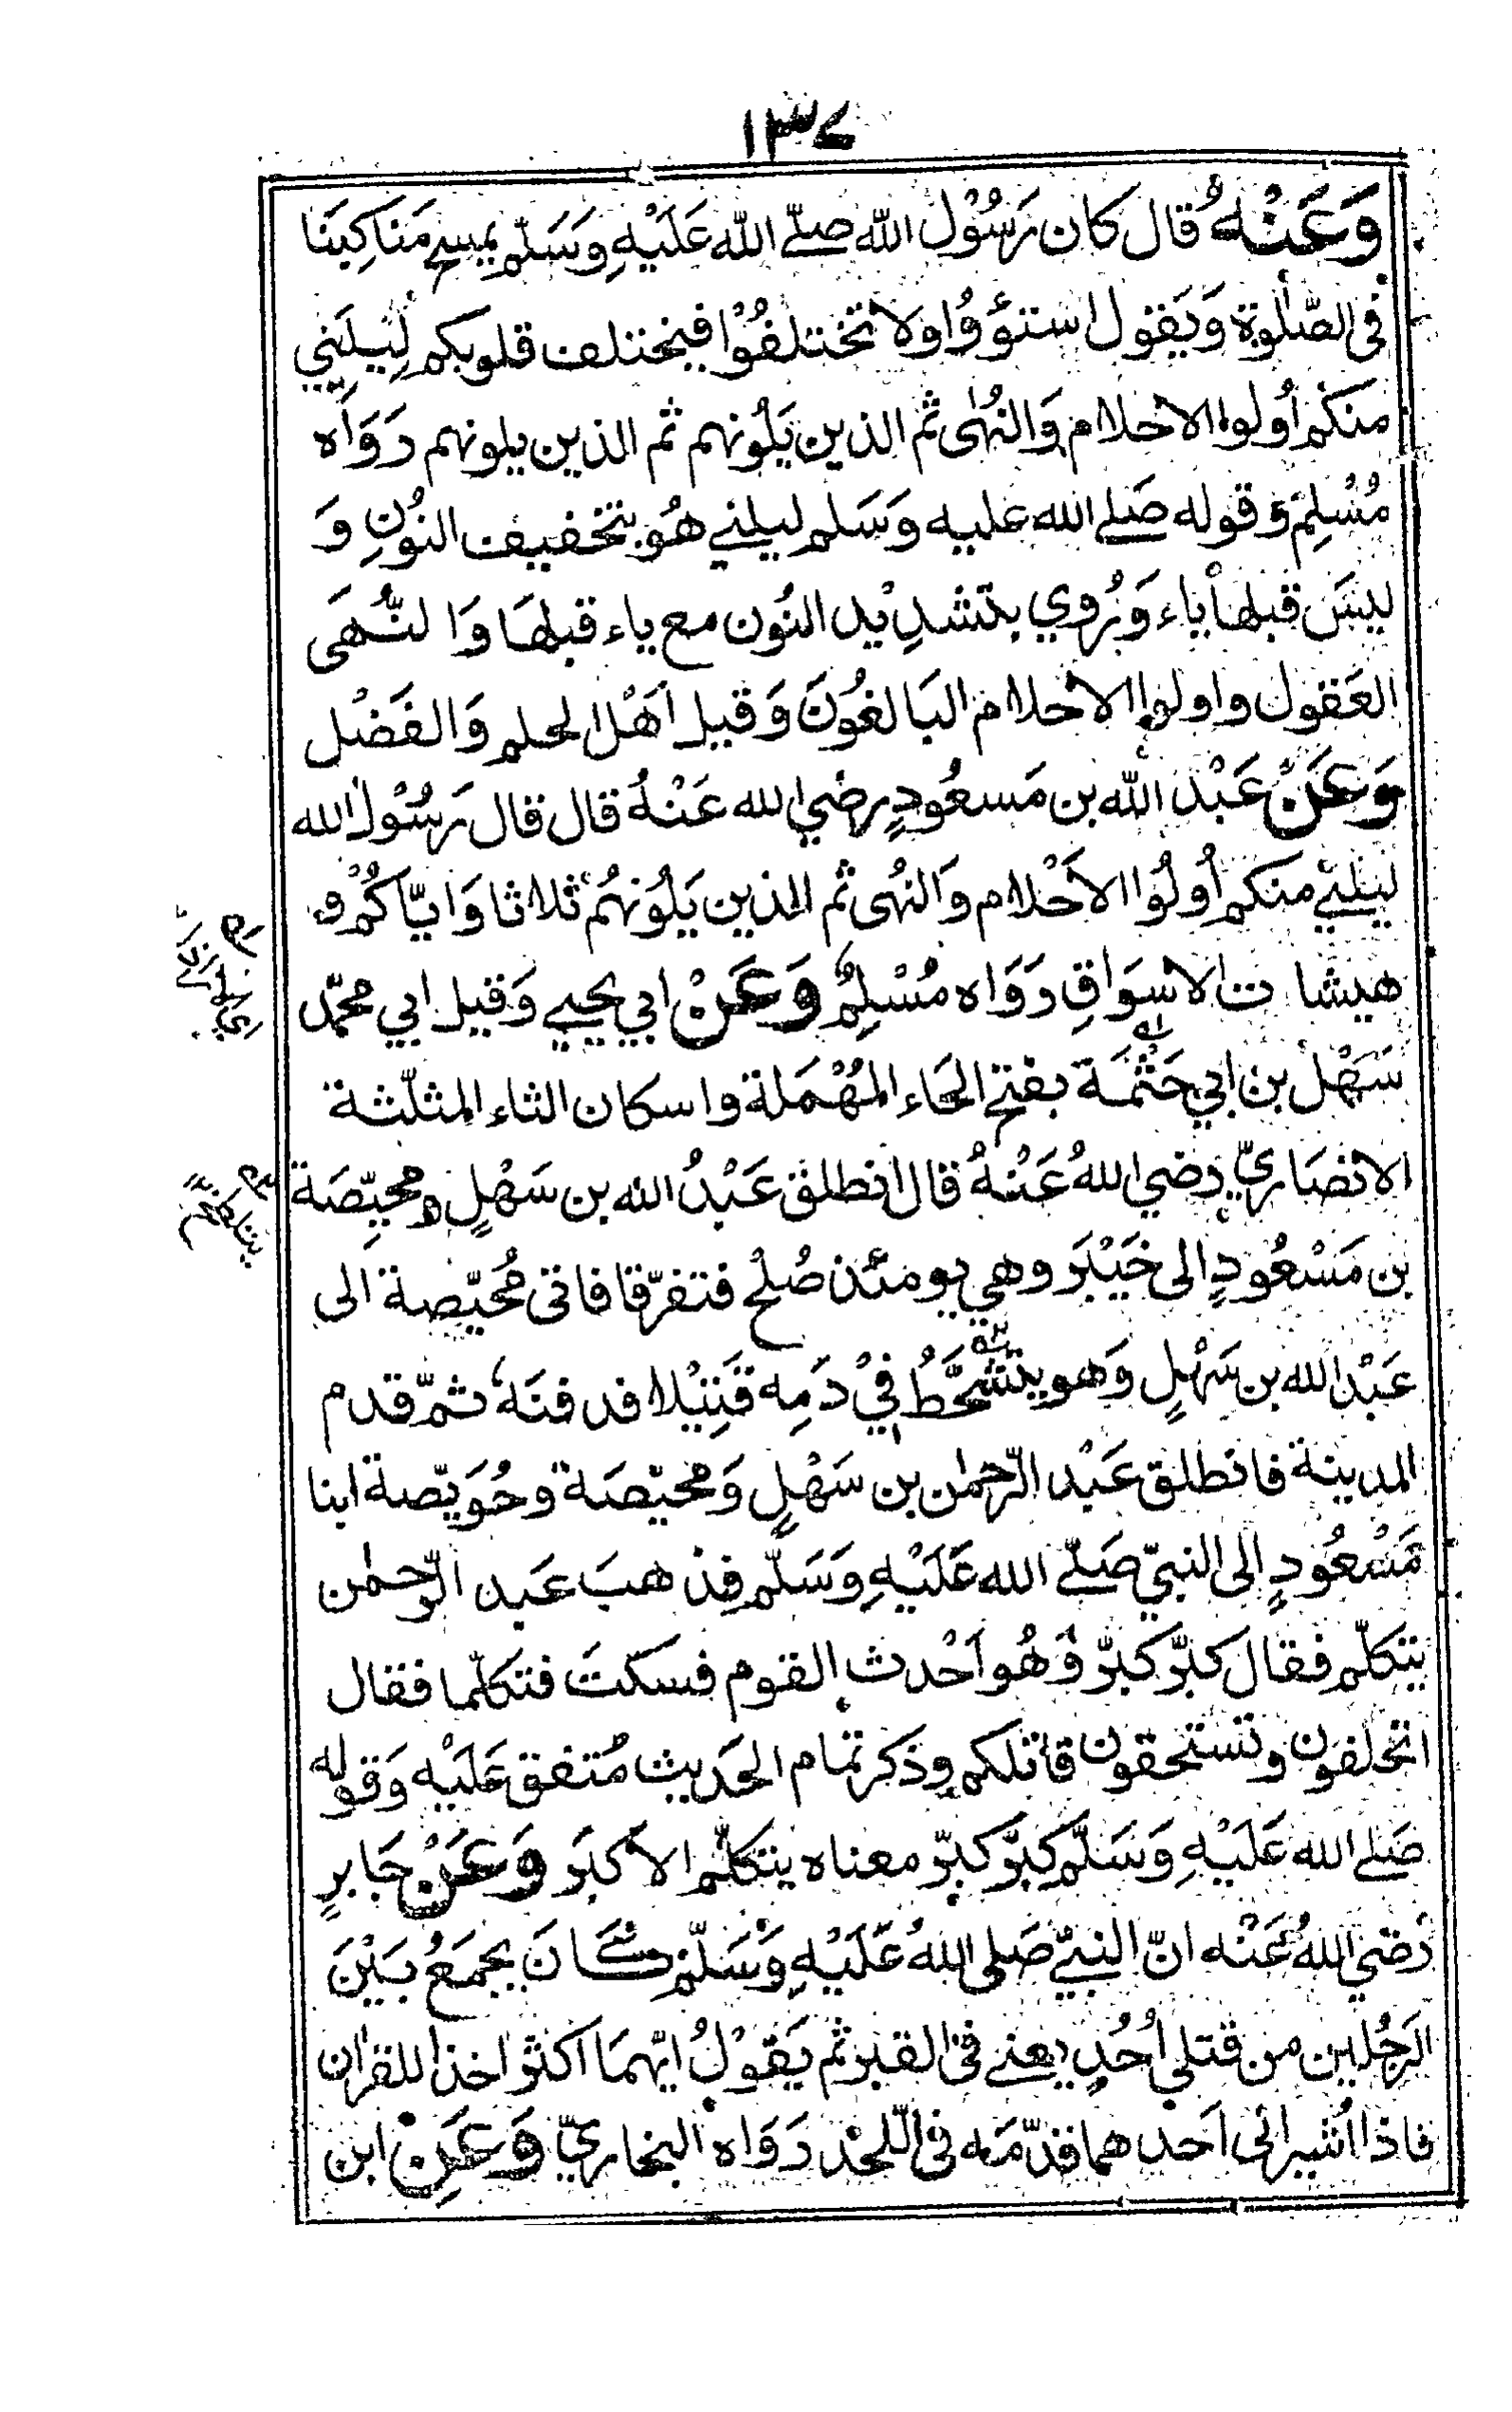 ١٣٧
وَعَنْهُ قال كان رَسُوْل اللّٰه صلّے اللّٰه عَلَيْهِ وَسَلّم يمسح مَنَاكِبَنَا
فى الصّلٰوة وَيَقول استوُوْا ولا تختلفُوْا فيختلف قلوبكم لِيَلِنِي
منكم اُولوا الاحلام وَالنُهٰى ثم الذين يَلُونهم ثم الذين يلونهم رَوَاه
مُسْلِم وَقوله صَلے الله عليه وَسَلم ليلني هُو بتخفيف النُونِ وَ
ليسَ قبلها ياء وَرُوِي بتشدِيْد النُون مع ياء قبلهَا وَالنُّهَى
العَقول واولوا الاحلام البَالغُونَ وَقيل اَهْل الحلم وَالفَضْل
وَعَنْ عَبْد اللّٰه بن مَسعُودٍ رضي الله عَنْهُ قال قال رَسُوْل الله
ليلني منكم اُولُوا الاَحْلام وَالنُهى ثم الذين يَلُونهُم ثلاثا وَايّاكُمْ و
هيشات الاسوَاقِ رَوَاه مُسْلِمٌ وَعَنْ ابي يحيي وَقيل ابي محمّد
سَهْل بن ابي حَثْمَة بفتح الحَاء المُهْمَلة واسكان الثاء المثلّثة
الانصَاريّ رضي اللهُ عَنْهُ قال انطلق عَبْدُ الله بن سَهْلٍ ومحيِّصَة
بن مَسْعُودٍ الى خَيْبَر وهي يومئذ صُلْح فتفرّقا فاتى مُحَيّصة الى
عَبْد الله بن سَهْلٍ وَهو يتشَحَّطُ فِيْ دَمِه قَتِيْلا فدفنَهُ ثمّ قدم
المدينة فانطلق عَبْد الرّحمٰن بن سَهْلٍ وَمحيّصَة وحُوَيّصة ابنا
مَسْعُودٍ الى النبيّ صَلّے الله عَلَيْهِ وَسَلّم فذهبَ عَبد الرّحمٰن
يتكلّم فقال كبّر كبّر وَهُو اَحْدث القوم فسكتَ فتكلّما فقال
اتحلفون وتستحقون قاتلكم وذكر تمام الحَديث مُتفق عَلَيْه وَقوله
صَلے الله عَلَيْهِ وَسَلّم كبّر كبّر معناه يتكلّم الاَكبَر وَعَنْ جَابرٍ
رَضي اللهُ عَنْه انّ النبيّ صَلى اللهُ عَلَيْهِ وَسَلّم كَانَ يجمَعُ بَيْنَ
الرَجُلين من قتلي اُحُدٍ يعني فى القبر ثم يَقوْلُ ايّهمَا اكثر اخذا للقراٰن
فاذا اُشير الى اَحدهما قدّمَه فى اللّحْد رَوَاه البخاريّ وَعَنِ ابن